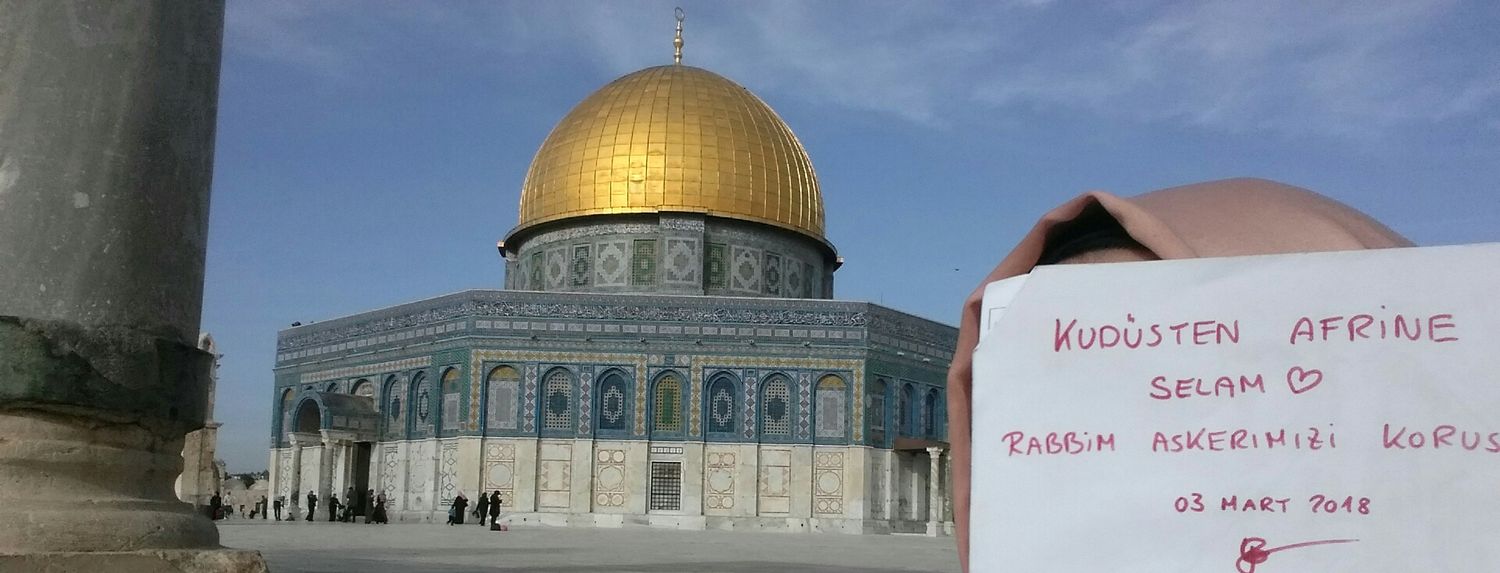 KUDÜSTEN AFRİNE
SELAM ♡
RABBİM ASKERIMIZI KORUS
03 MART 2018